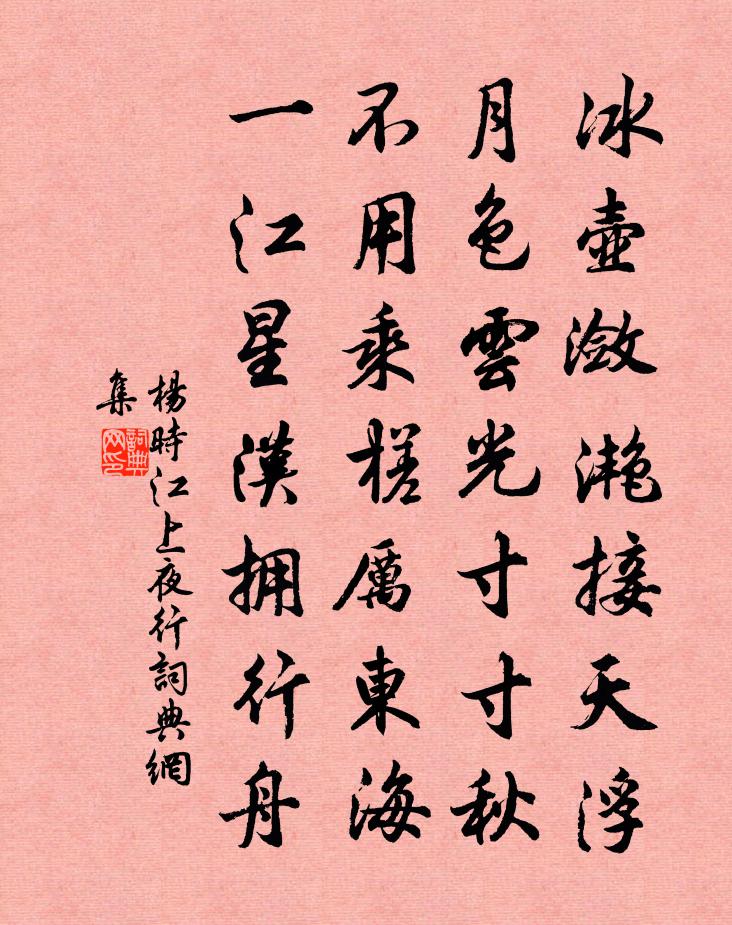 冰壺瀲灧接天浮
月色雲光寸寸秋
不用乘槎厲東海
一江星漢拥行舟
楊時江上夜行詞典網
集
詞典
网印